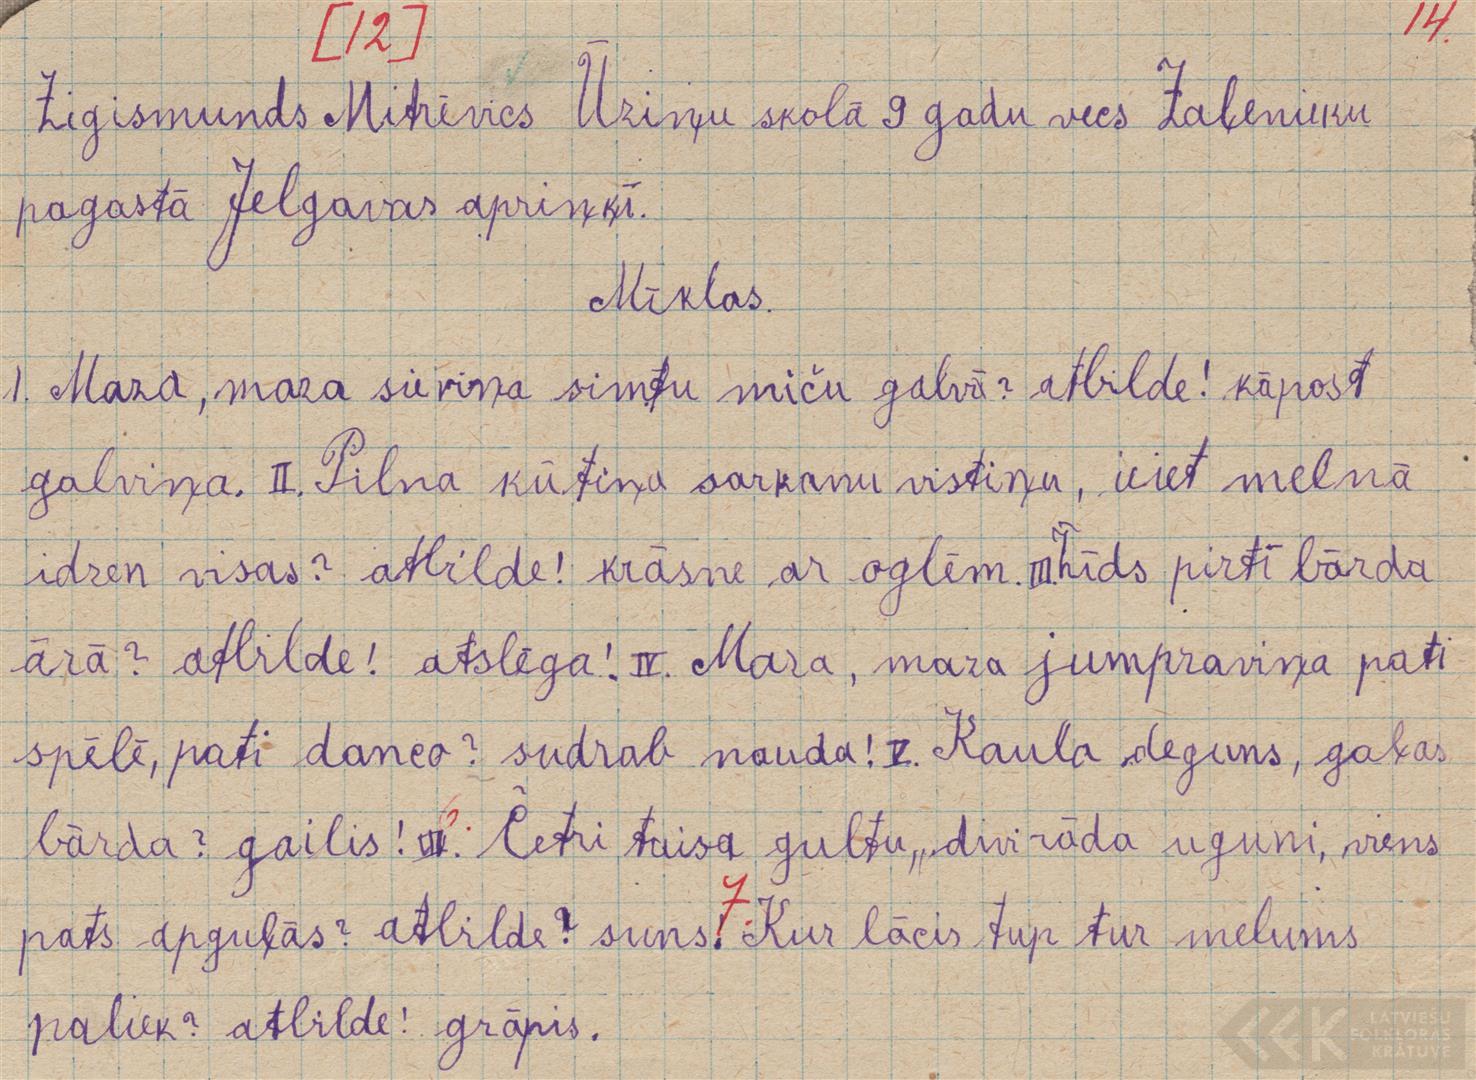 [12]
14.
Zigismunds Mitrēvics Ūziņu skolā 9 gadu vecs Zaļenieku
pagastā Jelgavas apriņķī.
Mīklas.
1. Maza, maza sieviņa simtu miču galvā? atbilde! kāpost
galviņa. II. Pilna kūtiņa sarkanu vistiņu, ieiet melnā
idzen visas? atbilde! krāsne ar oglēm. III. Žīds pirtī bārda
ārā? atbilde! atslēga! IV. Maza, maza jumpraviņa pati
spēlē, pati danco? sudrab nauda! V. Kaula deguns, gaļas
bārda? gailis! 6. Četri taisa gultu, divi rāda uguni, viens
pats apguļās? atbilde? suns! 7. Kur lācis tup tur melums
paliek? atbilde! grāpis.
LATVIEŠU
FOLKLORAS
KRĀTUVE